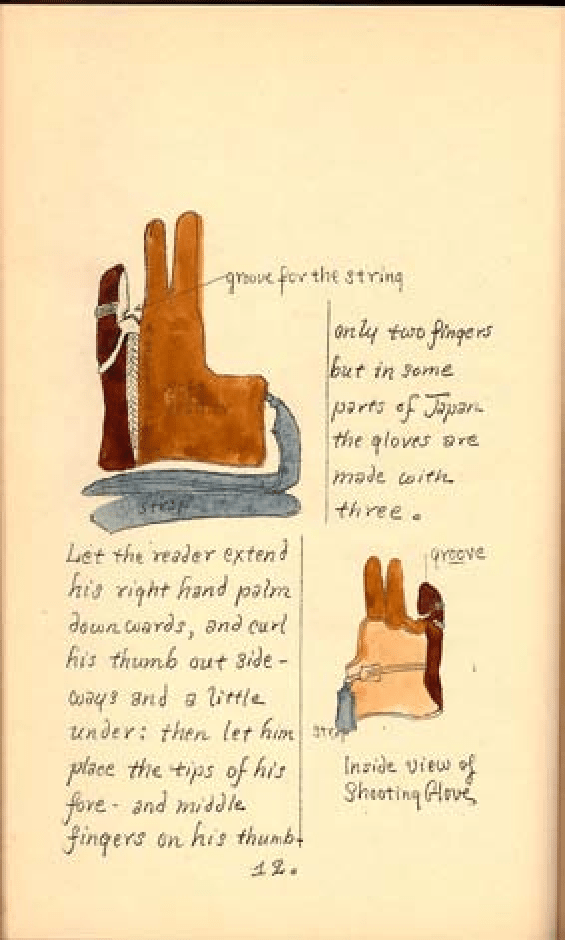 groove for the string
only two fingers
but in some
parts of Japan
the gloves are
made with
three.
strap
Let the reader extend
his right hand palm
downwards, and curl
his thumb out side-
ways and a little
under: then let him
place the tips of his
fore- and middle
fingers on his thumb.
groove
strap
Inside view of
Shooting Glove
12.